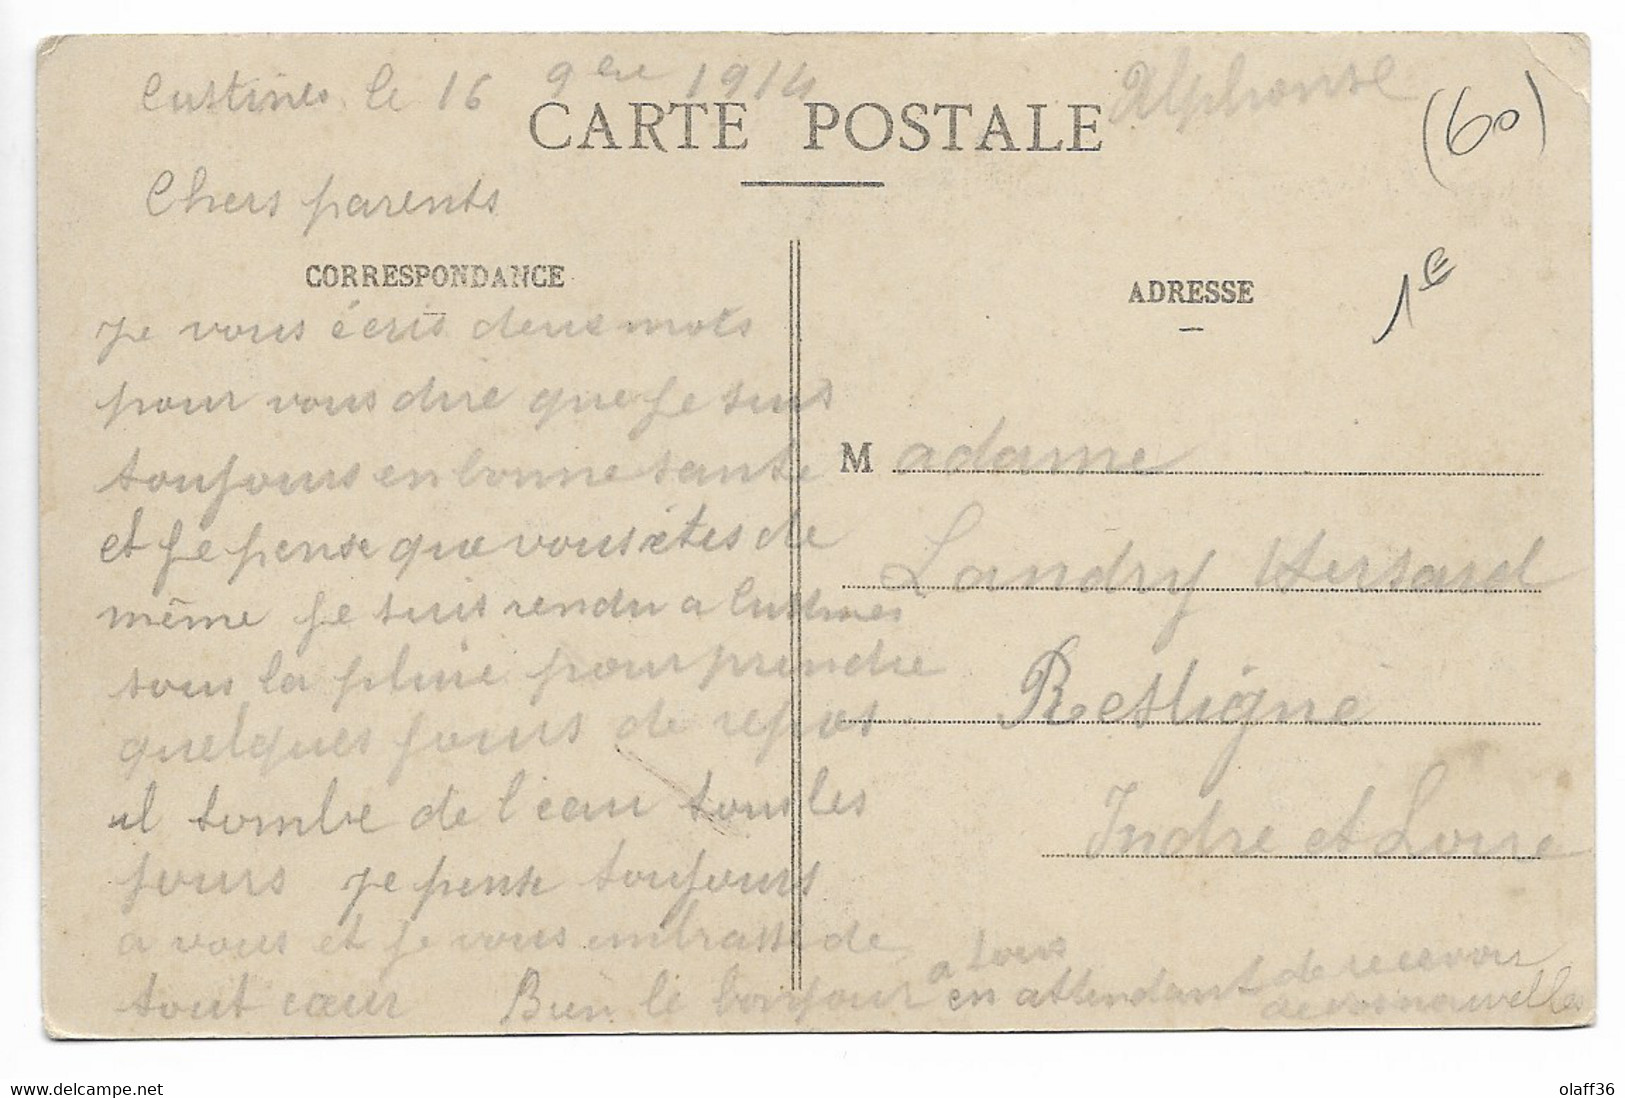 Custines le 16 9bre 1914
Alphonse
(60)
CARTE POSTALE
Chers parents
CORRESPONDANCE
Je vous écris deux mots
pour vous dire que je suis
toujours en bonne sante
et je pense que vous êtes de
même je suis rendu a Custines
sous la pluie pour prendre
quelques jours de repos
il tombe de l'eau tous les
jours je pense toujours
a vous et je vous embrasse de
tout cœur Bien le bonjour a tous
en attendant de recevoir
de vos nouvelles
ADRESSE
1E
Madame
Landry Hersard
Restigné
Indre et Loire
www.delcampe.net
olaff36